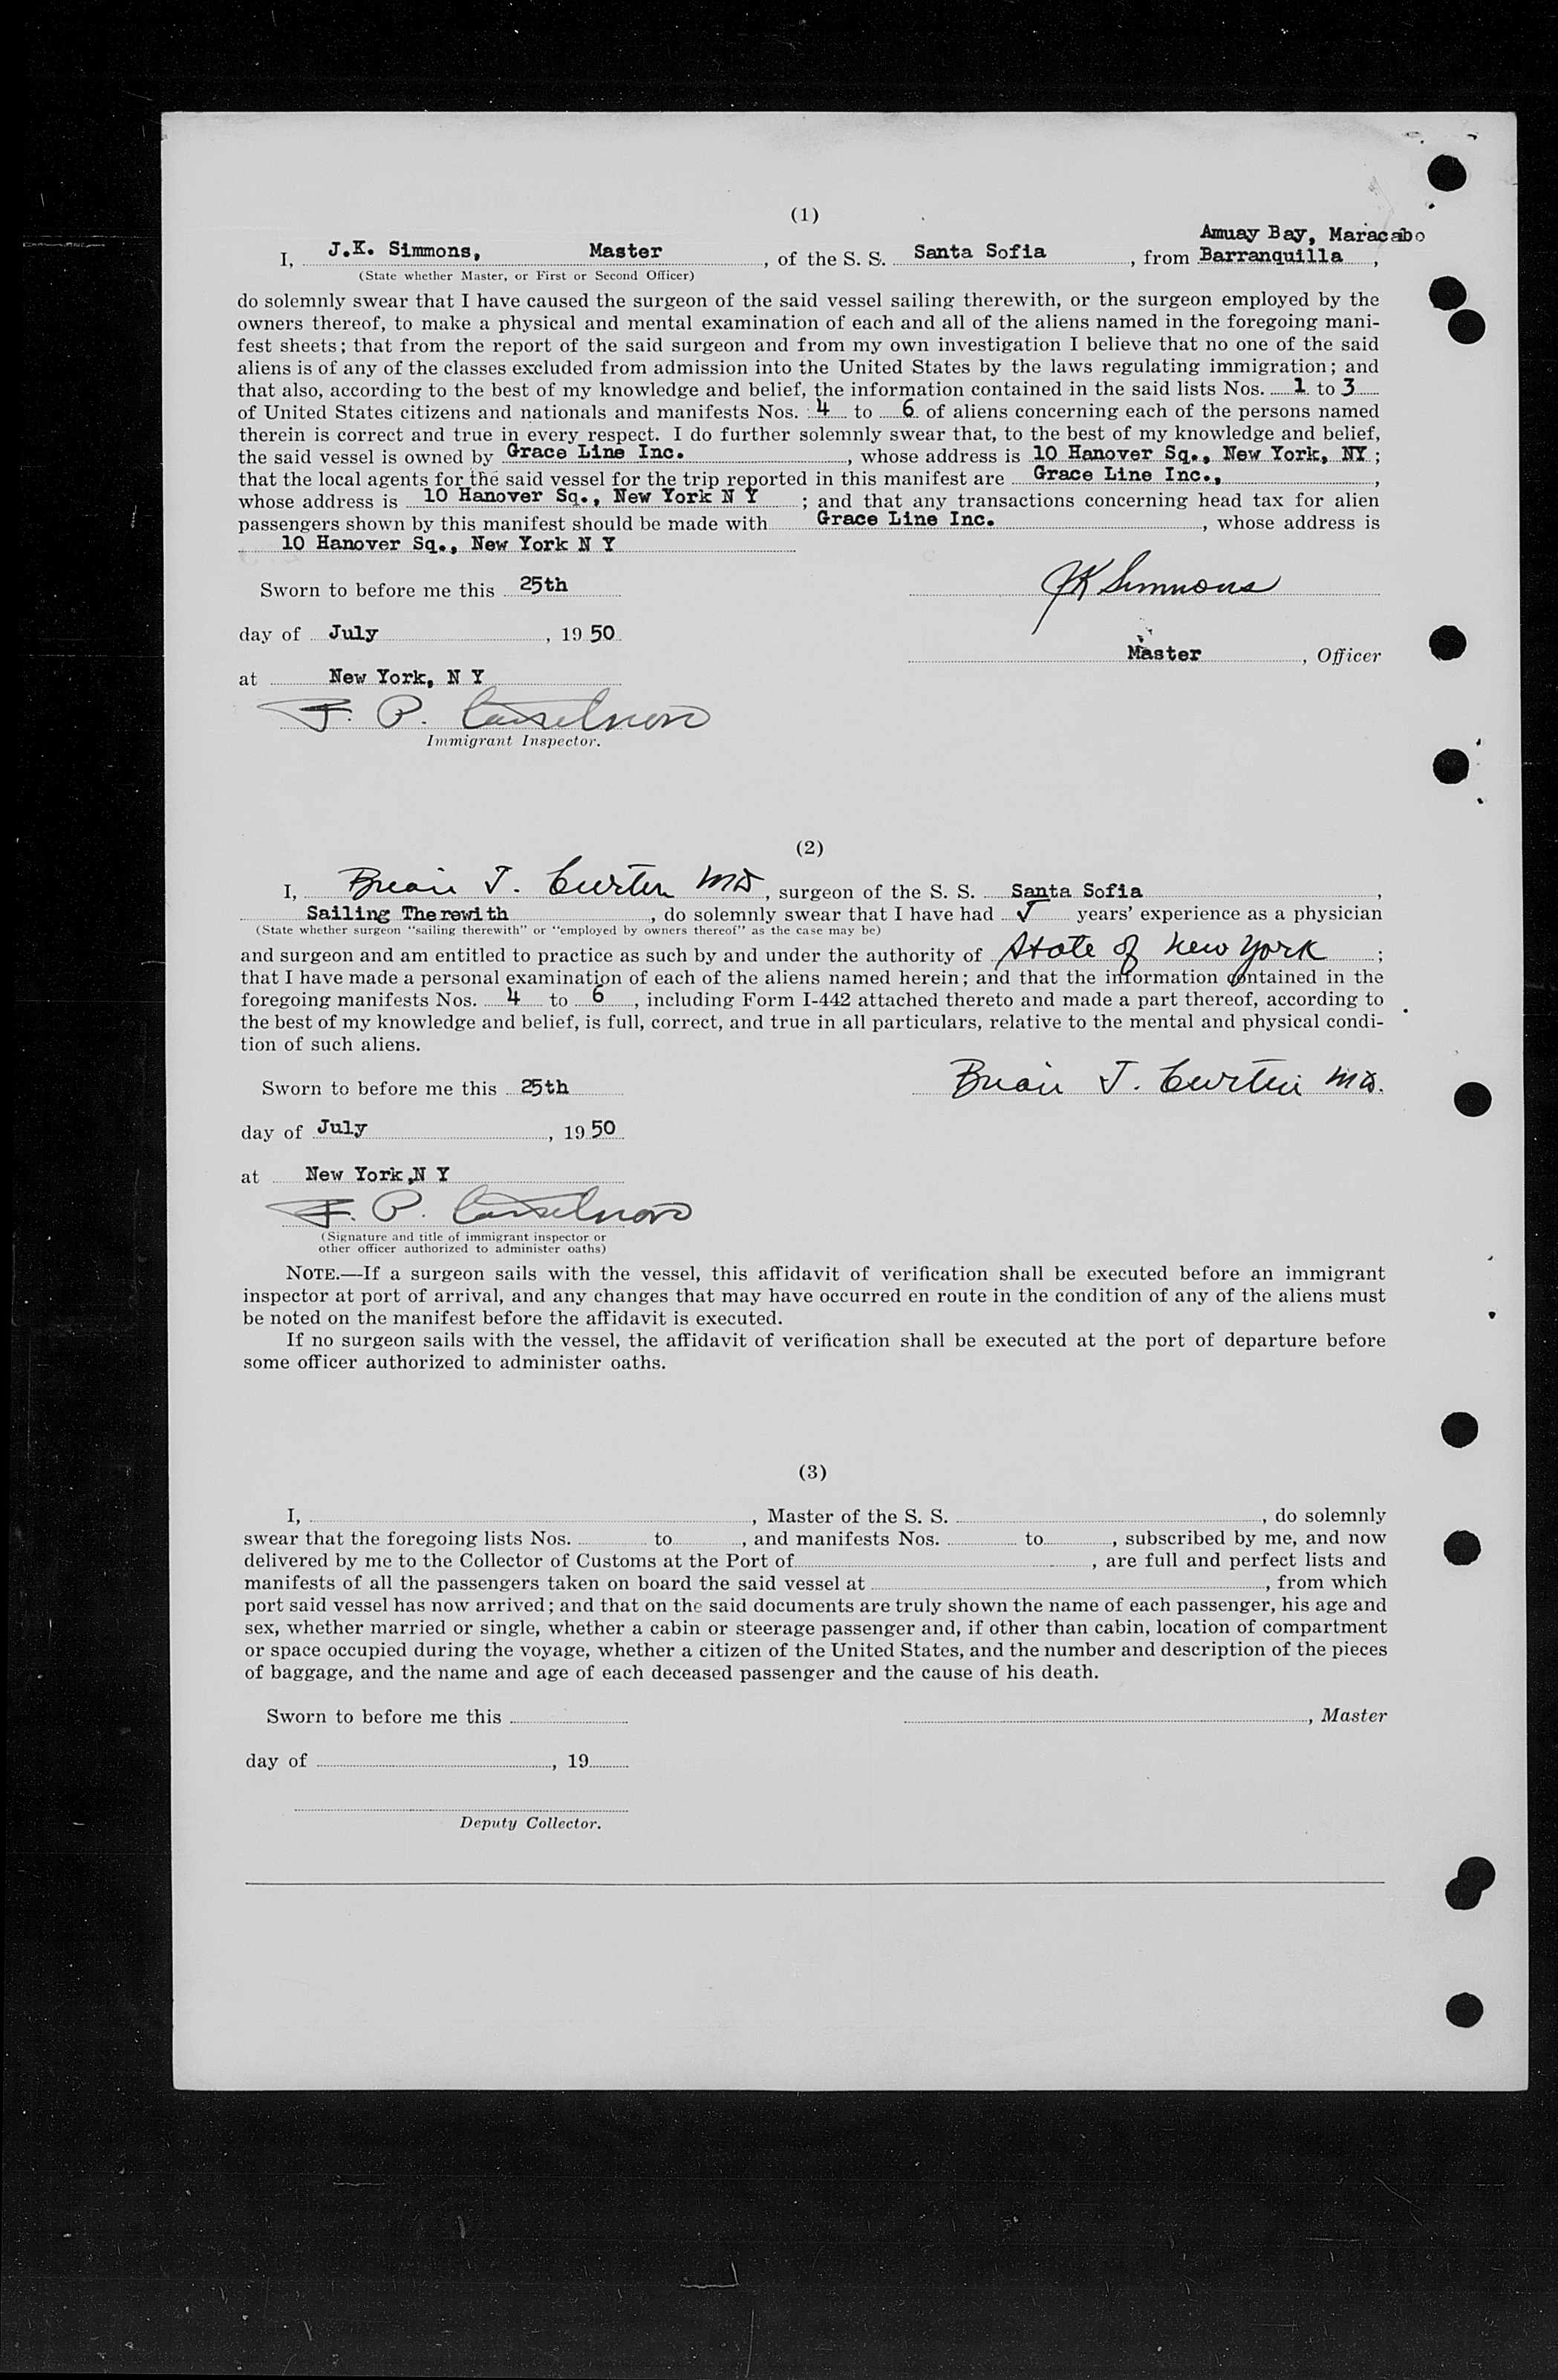 (1)
Amuay Bay, Maracabo
I, J.K. Simmons, Master, of the S. S. Santa Sofia, from Barranquilla,
(State whether Master, or First or Second Officer)
do solemnly swear that I have caused the surgeon of the said vessel sailing therewith, or the surgeon employed by the
owners thereof, to make a physical and mental examination of each and all of the aliens named in the foregoing mani-
fest sheets; that from the report of the said surgeon and from my own investigation I believe that no one of the said
aliens is of any of the classes excluded from admission into the United States by the laws regulating immigration; and
that also, according to the best of my knowledge and belief, the information contained in the said lists Nos. 1 to 3
of United States citizens and nationals and manifests Nos. 4 to 6 of aliens concerning each of the persons named
therein is correct and true in every respect. I do further solemnly swear that, to the best of my knowledge and belief,
the said vessel is owned by Grace Line Inc., whose address is 10 Hanover Sq., New York, NY;
that the local agents for the said vessel for the trip reported in this manifest are Grace Line Inc.,,
whose address is 10 Hanover Sq., New York N Y; and that any transactions concerning head tax for alien
passengers shown by this manifest should be made with Grace Line Inc., whose address is
10 Hanover Sq., New York N Y
Sworn to before me this 25th
JK Simmons
day of July, 1950
Master, Officer
at New York, N Y
F. P.
Immigrant Inspector.
(2)
I, Brian T. Curtin MD, surgeon of the S. S. Santa Sofia,
Sailing Therewith, do solemnly swear that I have had years' experience as a physician
(State whether surgeon "sailing therewith" or "employed by owners thereof" as the case may be)
and surgeon and am entitled to practice as such by and under the authority of State of New York;
that I have made a personal examination of each of the aliens named herein; and that the information contained in the
foregoing manifests Nos. 4 to 6, including Form I-442 attached thereto and made a part thereof, according to
the best of my knowledge and belief, is full, correct, and true in all particulars, relative to the mental and physical condi-
tion of such aliens.
Brian T. Curtin MD.
Sworn to before me this 25th
day of July, 1950
at New York,N Y
F. P.
(Signature and title of immigrant inspector or
other officer authorized to administer oaths)
NOTE.—If a surgeon sails with the vessel, this affidavit of verification shall be executed before an immigrant
inspector at port of arrival, and any changes that may have occurred en route in the condition of any of the aliens must
be noted on the manifest before the affidavit is executed.
If no surgeon sails with the vessel, the affidavit of verification shall be executed at the port of departure before
some officer authorized to administer oaths.
(3)
I, , Master of the S. S. , do solemnly
swear that the foregoing lists Nos. to , and manifests Nos. to , subscribed by me, and now
delivered by me to the Collector of Customs at the Port of , are full and perfect lists and
manifests of all the passengers taken on board the said vessel at , from which
port said vessel has now arrived; and that on the said documents are truly shown the name of each passenger, his age and
sex, whether married or single, whether a cabin or steerage passenger and, if other than cabin, location of compartment
or space occupied during the voyage, whether a citizen of the United States, and the number and description of the pieces
of baggage, and the name and age of each deceased passenger and the cause of his death.
Sworn to before me this
, Master
day of , 19
Deputy Collector.